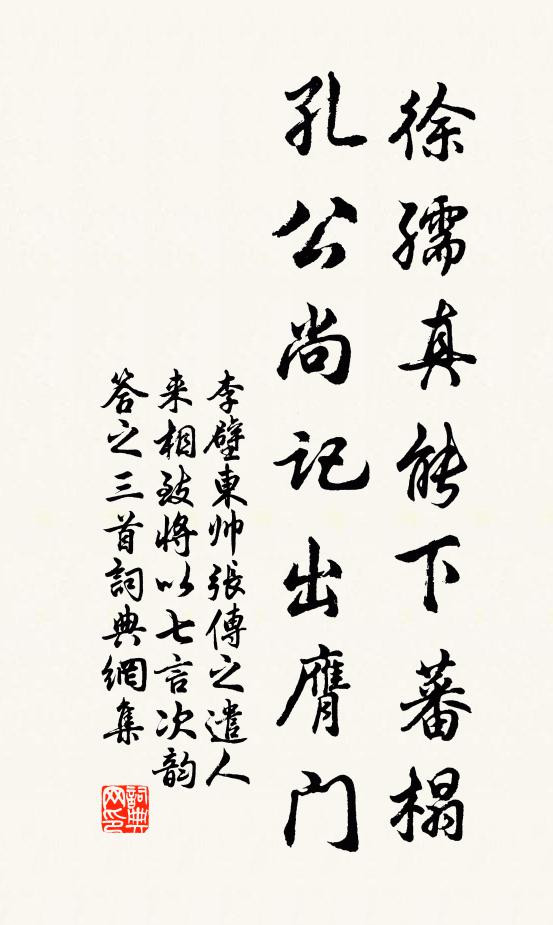 徐孺真能下蕃榻
孔公尚记出膺门
李壁東帅張傅之遣人
来相致将以七言次韵
答之三首詞典網集
詞典网印